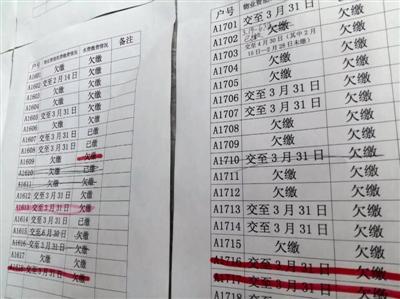 户号 物业费缴费情况 水费缴费情况 备注
A1601 欠缴 欠缴
A1602 交至2月14日 欠缴
A1603 欠缴 欠缴
A1604 欠缴 欠缴
A1605 交至3月31日 欠缴
A1606 欠缴 欠缴
A1607 交至3月31日 已缴
A1608 交至3月31日 已缴
A1609 欠缴 欠缴
A1610 欠缴 已缴
A1611 欠缴 欠缴
A1612 交至3月31日 欠缴
A1613 交至3月31日 欠缴
A1614 交至3月31日 已缴
A1615 交至6月30日 欠缴
A1616 交至3月31日 欠缴
A1617 欠缴 欠缴
A1618 交至3月31日 欠缴
户号 物业费
A1701 交至3月31日
A1702 欠缴 欠缴
A1703 交至4月30日(其中2月15日-2月28日未缴) 欠缴
A1704 欠缴 欠缴
A1705 欠缴 欠缴
A1706 交至3月31日 欠缴
A1707 交至3月31日 欠缴
A1708 欠缴 欠缴
A1709 欠缴 欠缴
A1710 交至3月31日 欠缴
A1711 欠缴 欠缴
A1712 欠缴 欠缴
A1713 交至3月31日 欠缴
A1714 交至3月31日 欠缴
A1715 欠缴 欠缴
A1716 交至3月31日 欠缴
A1717 交至3月31日 欠缴
A1718